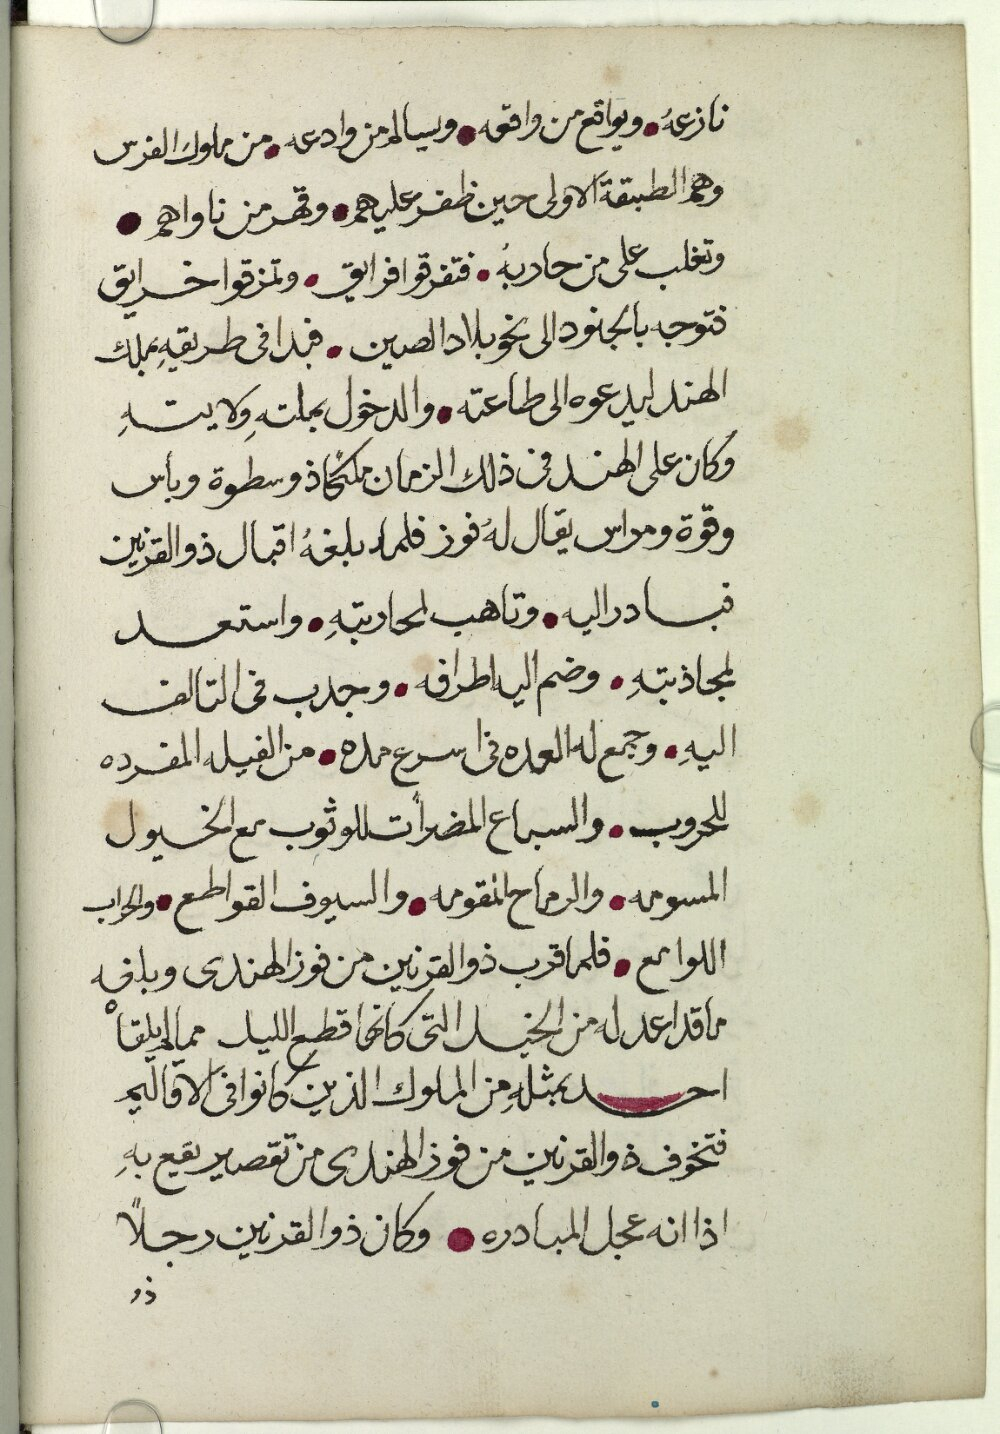 نازعهُ • ويواقع من واقعه • ويسالم من وادعه • من ملوك الفرس
وهم الطبقة الاولى حين ظفر عليهم • وقهر من ناواهم •
وتغلب على من حاربهُ • فتفرقوا فرايق • وتمزقوا خرايق
فتوجه بالجنود الى نحو بلاد الصين • فبدا فى طريقهِ بملك
الهند ليدعوه الى طاعته • والدخول بملتهِ ولايتهِ
وكان على الهند فى ذلك الزمان ملكًا ذو سطوة وبأس
وقوة ومراس يقال لهُ فوز فلما بلغهُ اقبال ذو القرنين
فبادر اليه • وتاهب لمحاربتهِ • واستعد
لمجاذبتهِ • وضم اليه اطرافه • وجدب فى التالف
اليهِ • وجمع له العده فى اسرع مده • من الفيله المفرده
للحروب • والسباع المضرات للوثوب مع الخيول
المسومه • والرماح المقومه • والسيوف القواطع • والحراب
اللوامع • فلما قرب ذو القرنين من فوز الهندى وبلغه
ما قد اعد له من الخيل التى كانها قطع الليل مما لم يلقاه
احد بمثلهِ من الملوك الذين كانوا فى الاقاليم
فتخوف ذو القرنين من فوز الهندى من تقصير يقع بهِ
اذا انه عجل المبادره • وكان ذو القرنين رجلًا
ذو